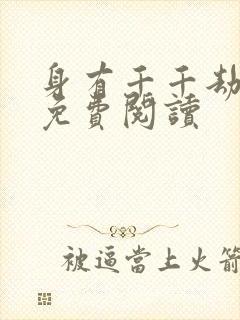 身有千千劫
免費閱讀
被逼當上火箭